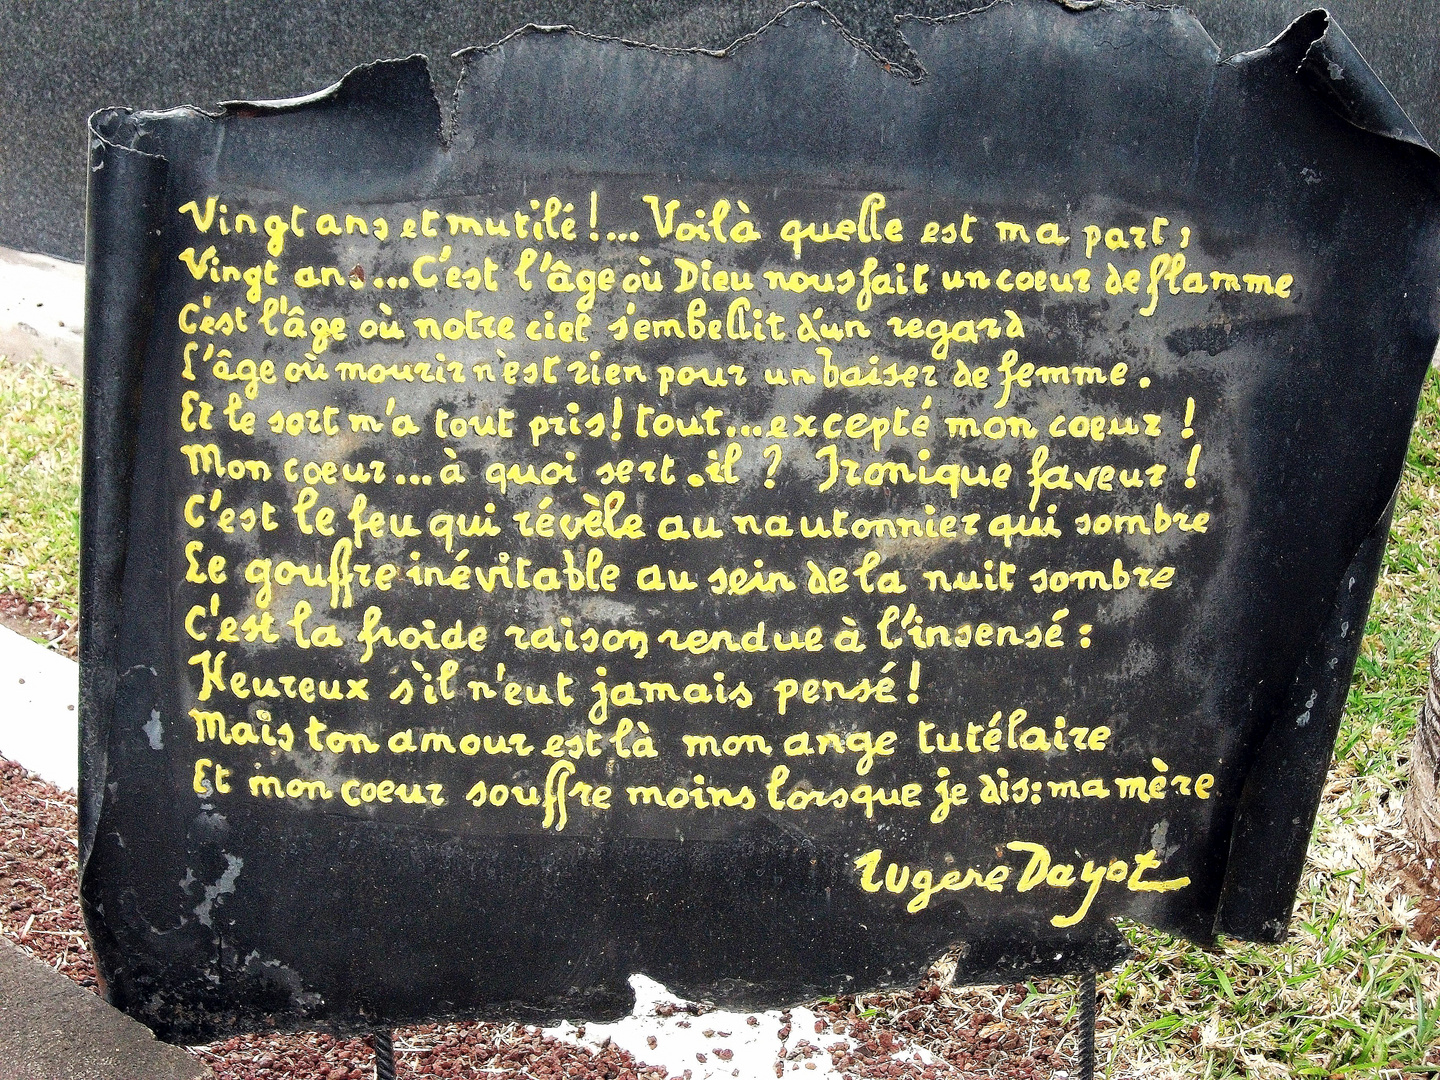 Vingt ans et mutilé !... Voilà quelle est ma part ;
Vingt ans ... C'est l'âge où Dieu nous fait un coeur de flamme
C'est l'âge où notre ciel s'embellit d'un regard
L'âge où mourir n'est rien pour un baiser de femme .
Et le sort m'a tout pris ! tout ... excepté mon coeur !
Mon coeur ... à quoi sert-il ? Ironique faveur !
C'est le feu qui révèle au nautonnier qui sombre
Le gouffre inévitable au sein de la nuit sombre
C'est la froide raison rendue à l'insensé :
Heureux s'il n'eut jamais pensé !
Mais ton amour est là mon ange tutélaire
Et mon coeur souffre moins lorsque je dis : ma mère
Eugene Dayot